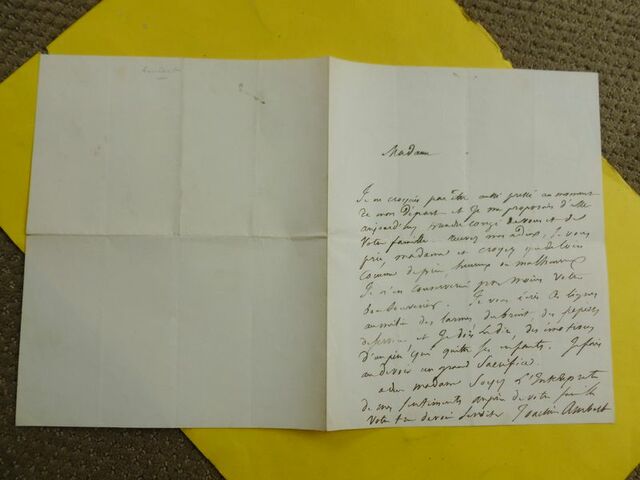 Madame
Je ne croyais pas être aussi pressé au moment
de mon Départ et Je me proposais d'aller
aujourd'huy prendre congé de vous et de
Votre famille. recevez mes adieux, Je vous
prie, madame et croyez que de loin
comme de près, heureux ou malheureux
Je n'en conserverai pas moins votre
bon souvenir. Je vous écris ces lignes
au milieu des larmes, du bruit, des
et Je dois le dire, des
d'un père qui quitte ses enfants. Je fais
au devoir un grand Sacrifice.
adieu madame Soyez l'Interprète
de mes Sentiments auprès de votre famille
Votre Joachim Ambert